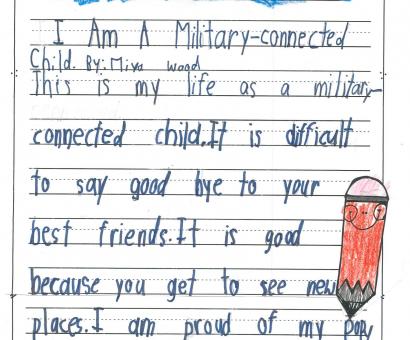 I Am A Military-connected
Child. By: Miya Wood
This is my life as a military-
connected child.It is difficult
to say good bye to your
best friends.It is good
because you get to see new
places.I am proud of my